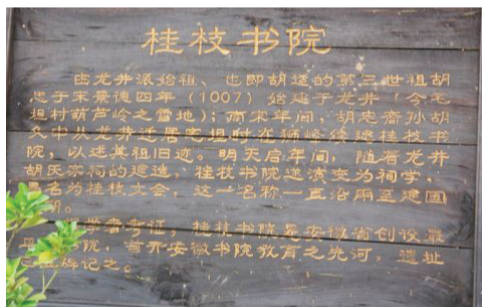 桂枝书院
由龙井派始祖、也即胡适的第三世祖胡
忠于宋景德四年（1007）始建于龙井（今宅
坦村葫芦岭之雪地）；南宋年间，胡忠裔孙胡
中从龙井迁居宅坦时在狮峰续建桂枝书
院，以述其祖旧迹。明天启年间，随着龙井
胡氏宗祠的建造，桂枝书院遂演变为祠学，
名为桂枝文会，这一名称一直沿用至建国
学者考证，桂枝书院是安徽省创设最
书院，首开安徽书院教育之先河，遗址
碑记之。